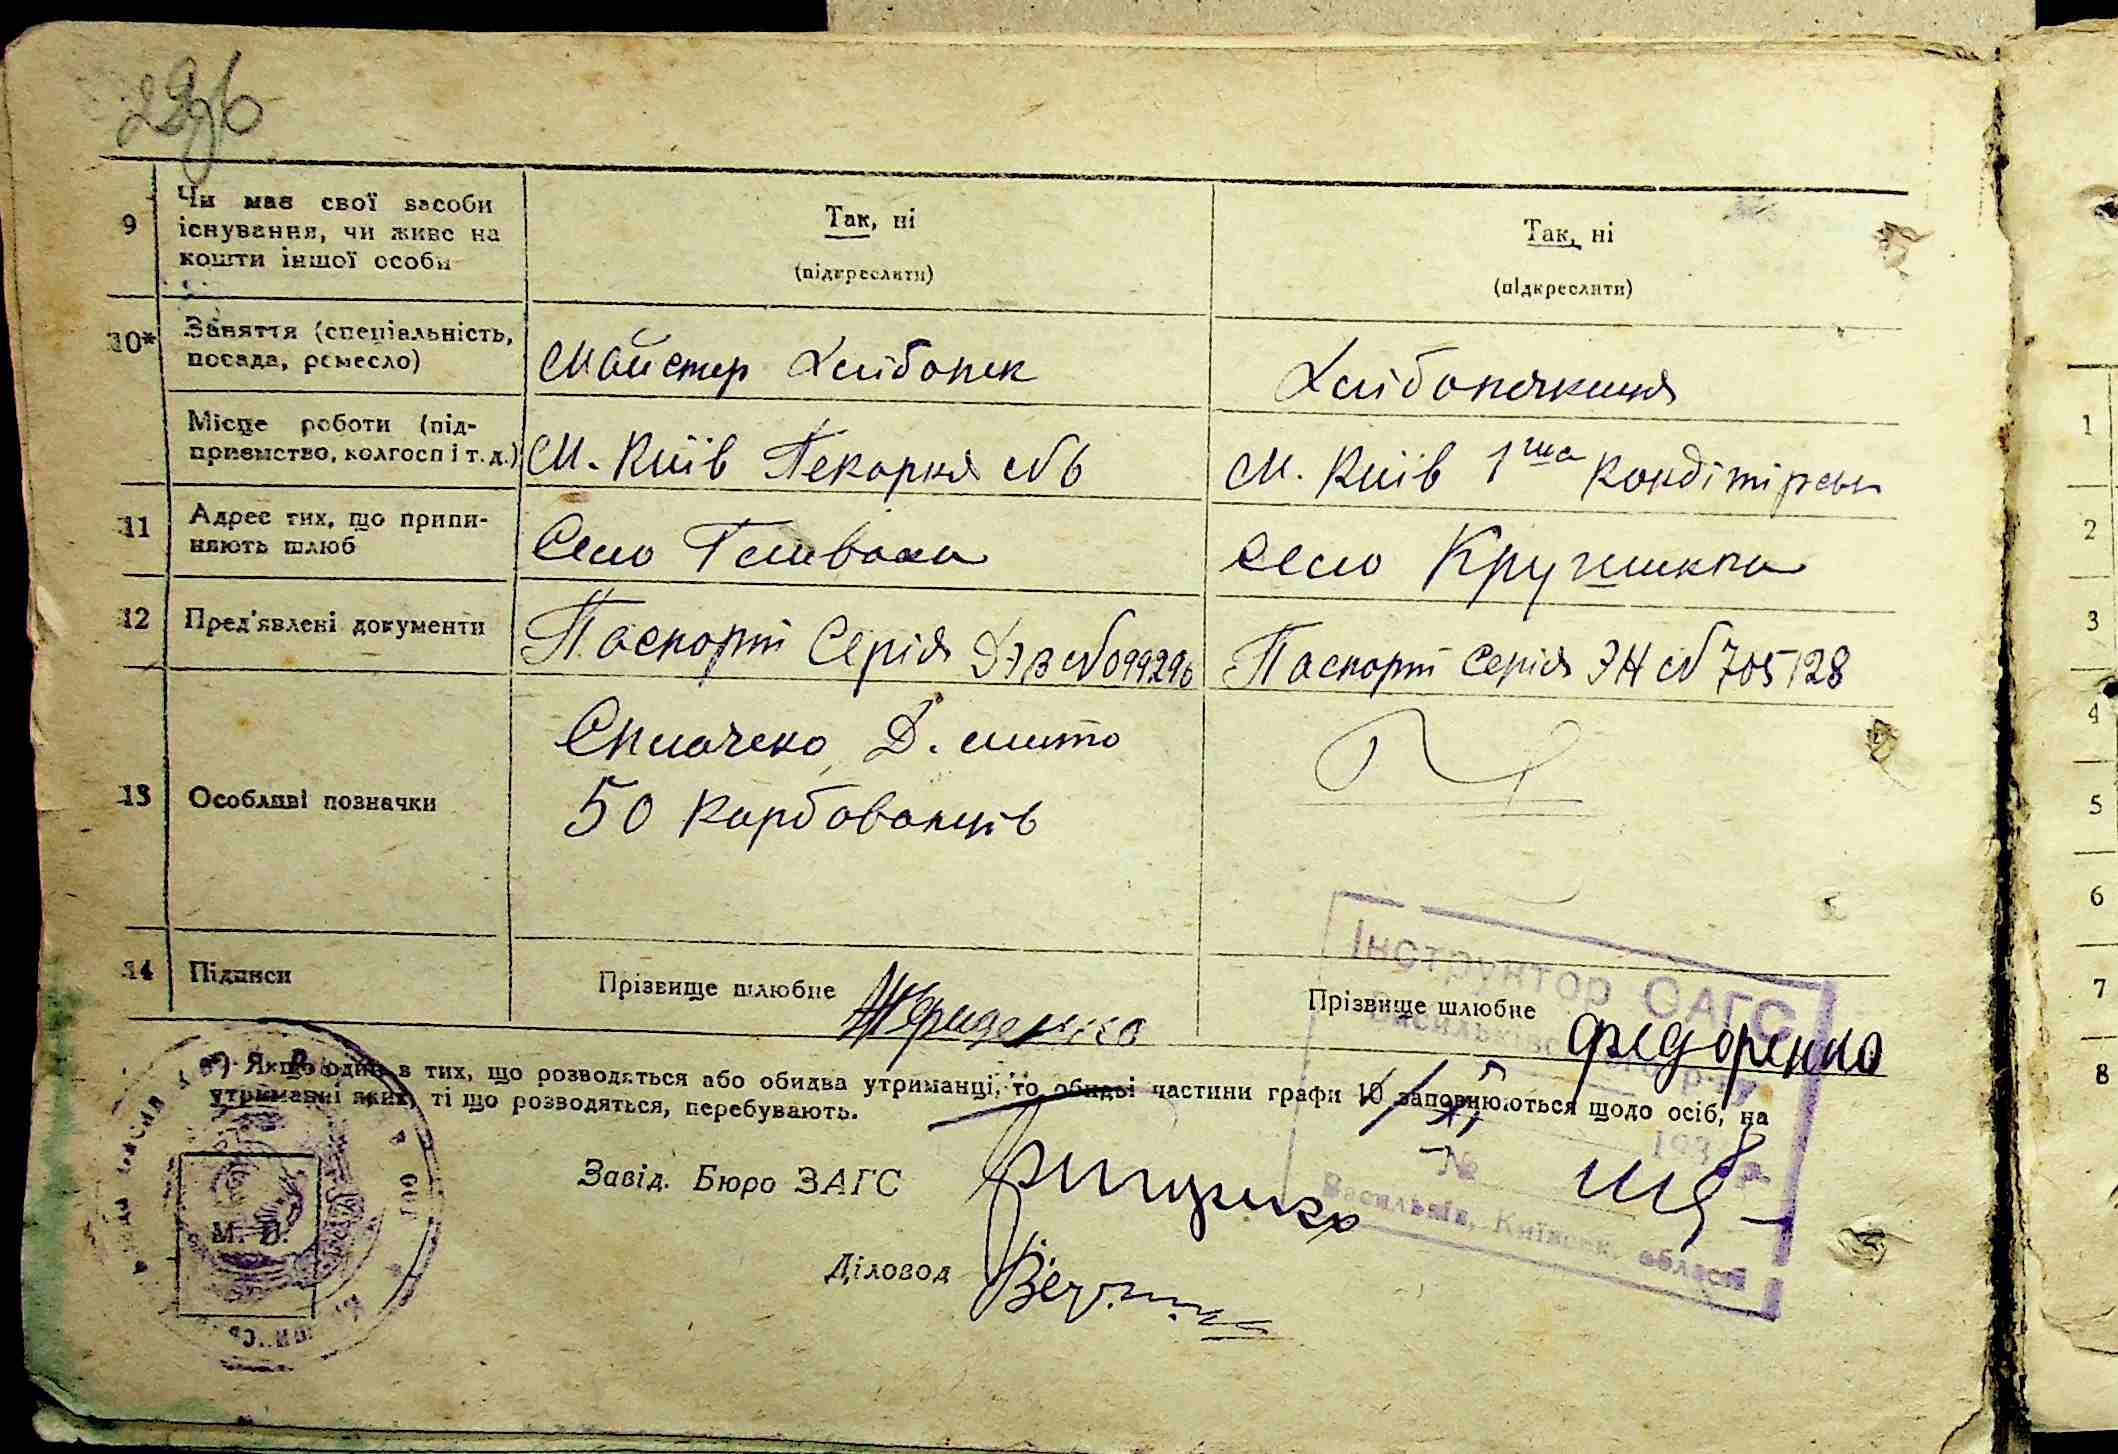 296
9
Чи має свої засоби
існування, чи живе на
кошти іншої особи
Так, ні
(підкреслити)
Так, ні
(підкреслити)
10*
Заняття (спеціальність,
посада, ремесло)
Майстер Хлібопек
Хлібопекиня
Місце роботи (під-
приємство, колгосп і т. д.)
М. Київ Пекарня № 6
М. Київ 1ша Кондітірськ
11
Адрес тих, що припи-
няють шлюб
Село Глеваха
село Круглики
12
Пред'явлені документи
Паспорт Серія № 099296
Паспорт Серія ЭН № 705128
13
Особливі позначки
Сплачено Д. мито
50 карбованців
14
Підписи
Прізвище шлюбне
Прізвище шлюбне Федоренко
*) Якщо один з тих, що розводяться або обидва утриманці, то обидві частини графи 10 заповнюються щодо осіб, на
утриманні яких, ті що розводяться, перебувають.
Завід. Бюро ЗАГС
Діловод
М. П.
Інструктор ОАГС
193 8 р.
№
Васильків, Київськ. області
1
2
3
4
5
6
7
8